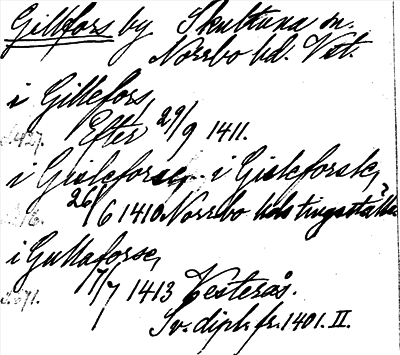 Gillfors by Skultuna sn.
Norrbo hd. Vstm.
i Gillefors,
Efter 29/9 1411.
i Gisleforse, i Gisleforsk,
26/6 1410 Norrbo hds tingsställe
i Gullaforse,
7/7 1413 Vesterås.
Sv. dipl. fr. 1401. II.